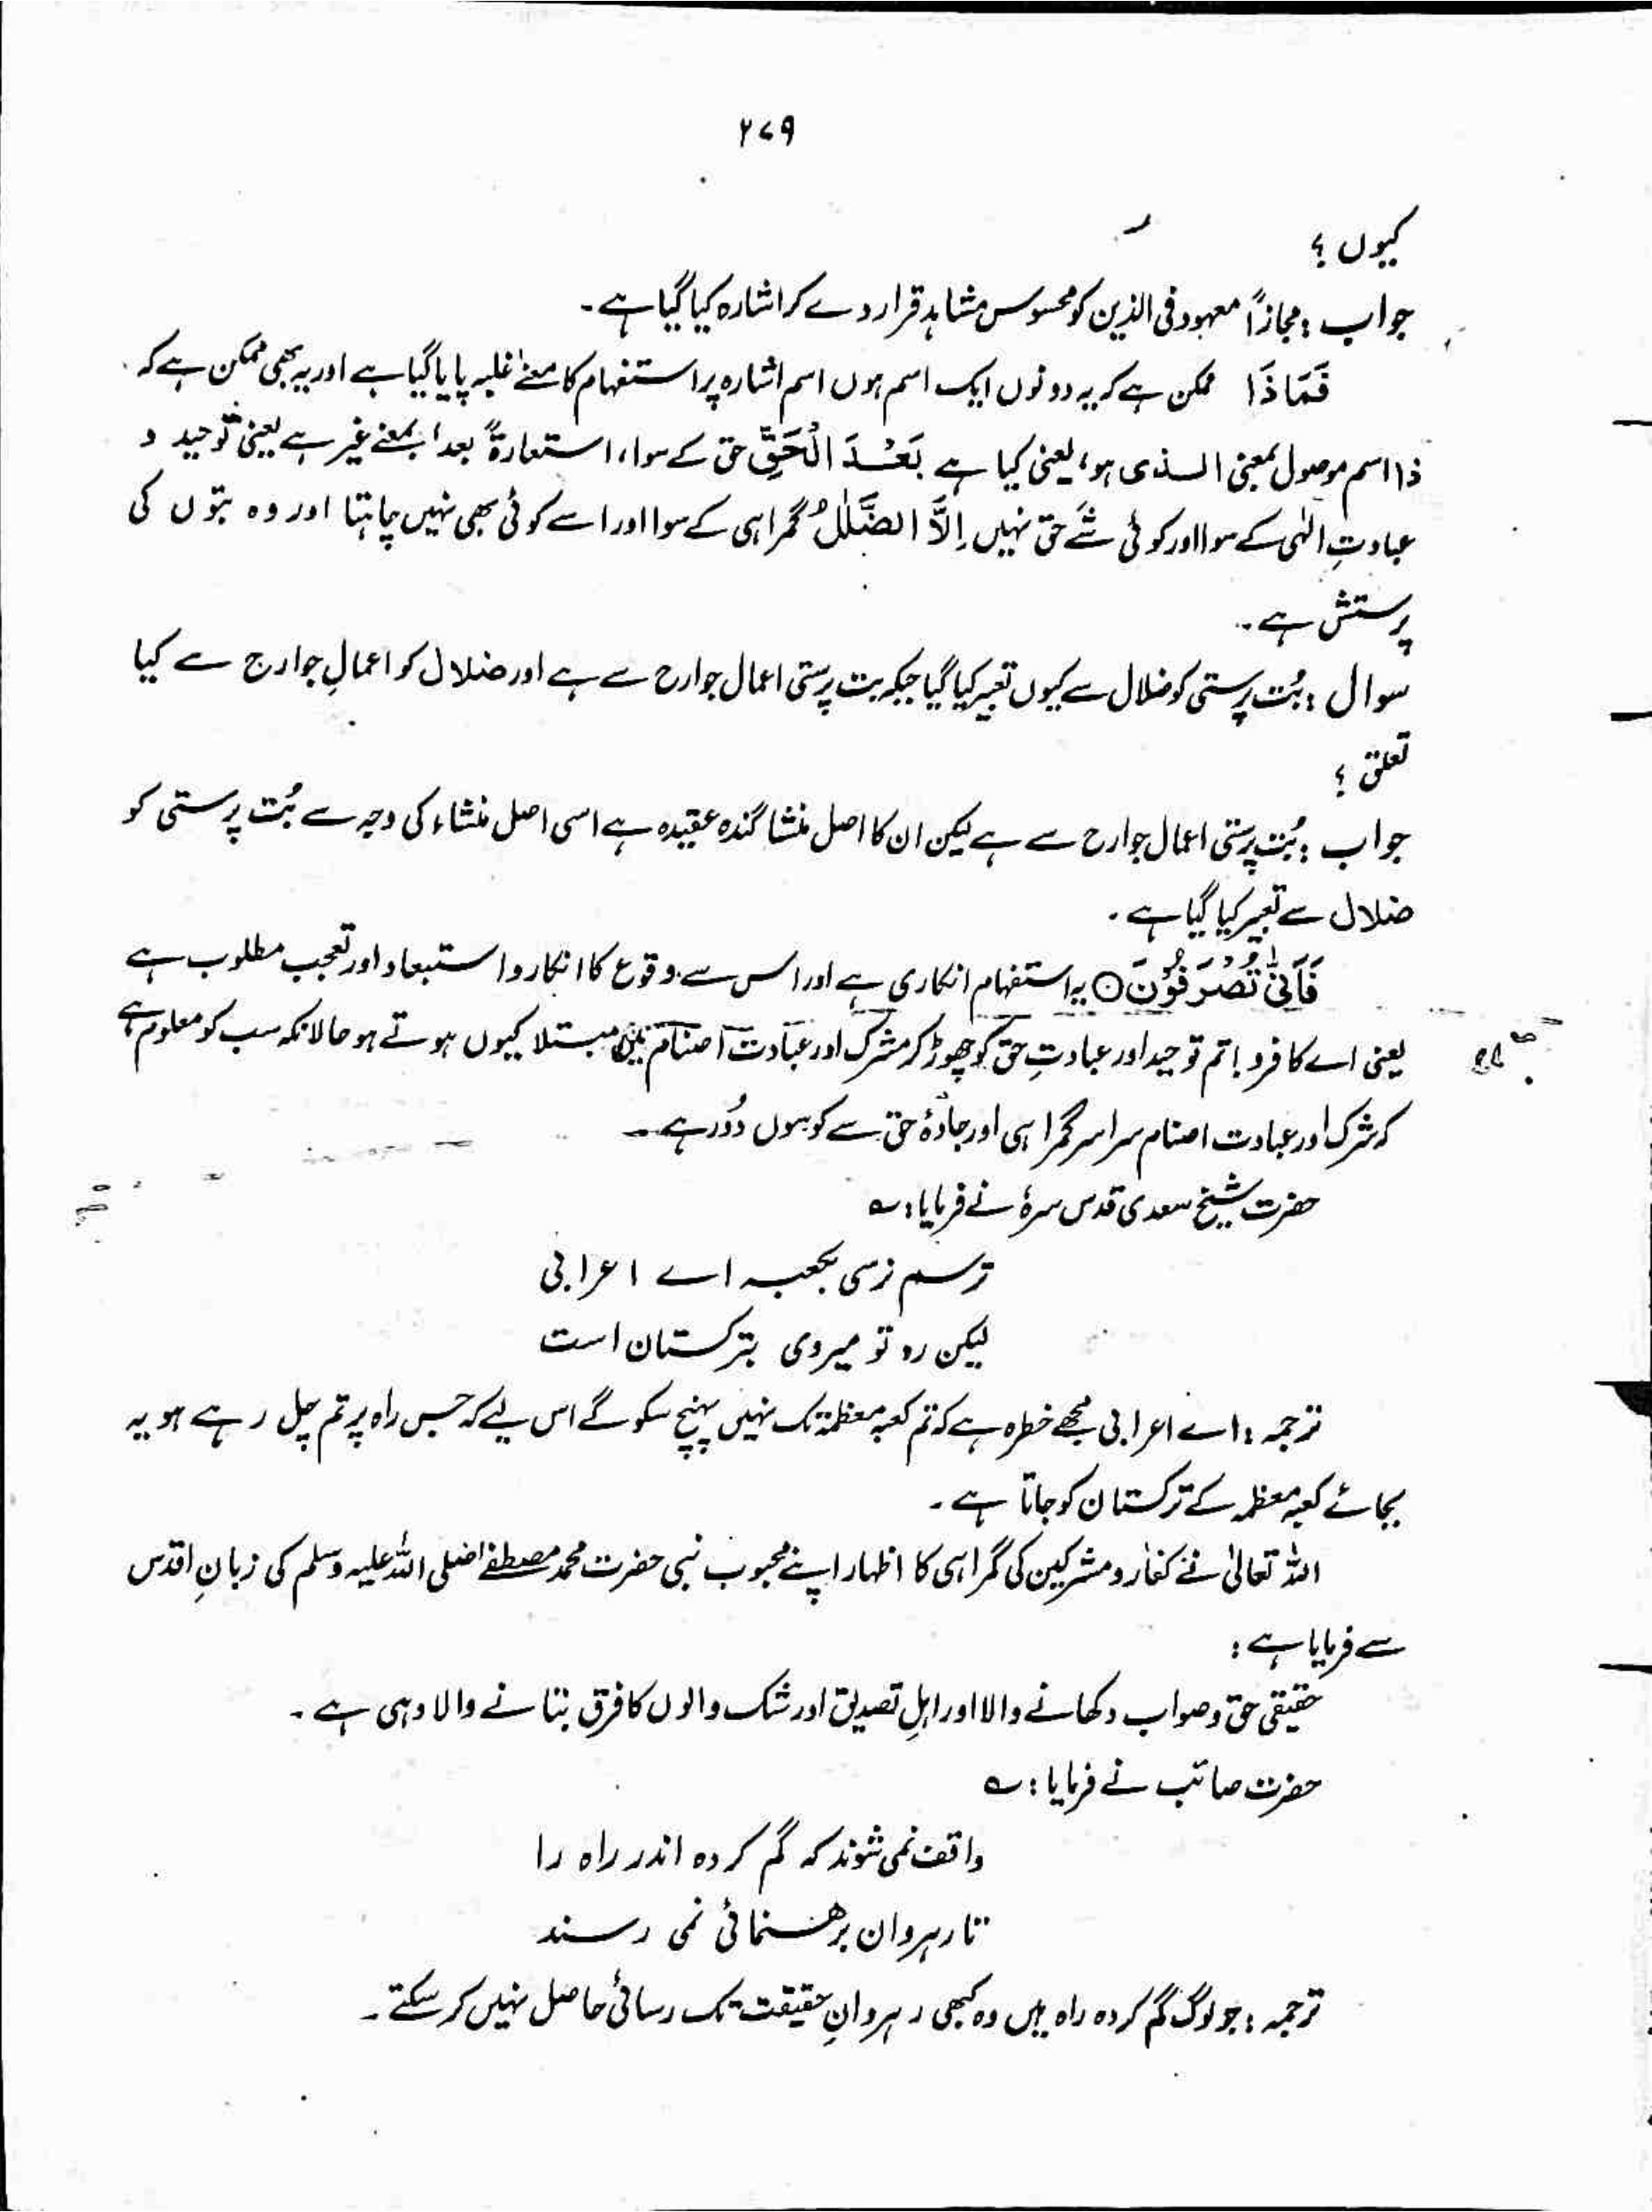 ۲۷۹
کیوں ؟
جواب : مجازاً معہود فی الذین کو محسوس مشاہد قرار دے کر اشارہ کیا گیا ہے۔
فَمَاذَا ممکن ہے کہ یہ دونوں ایک اسم ہوں اسم اشارہ پر استفہام کا معنے غلبہ پایا گیا ہے اور یہ بھی ممکن ہے کہ
ذا اسم موصول بمعنی الذی ہو، یعنی کیا ہے بَعْدَ الْحَقِّ حق کے سوا، استعارۃً بعد بمعنے غیر ہے یعنی توحید و
عبادتِ الٰہی کے سوا اور کوئی شے حق نہیں اِلَّا الضَّلٰلُ گمراہی کے سوا اور اسے کوئی بھی نہیں چاہتا اور وہ بتوں کی
پرستش ہے۔
سوال : بُت پرستی کو ضلال سے کیوں تعبیر کیا گیا جبکہ بت پرستی اعمال جوارح سے ہے اور ضلال کو اعمالِ جوارح سے کیا
تعلق ؟
جواب : بُت پرستی اعمال جوارح سے ہے لیکن ان کا اصل منشا گندہ عقیدہ ہے اسی اصل منشاء کی وجہ سے بُت پرستی کو
ضلال سے تعبیر کیا گیا ہے۔
فَاَنّٰی تُصْرَفُوْنَ ○ یہ استفہام انکاری ہے اور اس سے وقوع کا انکار و استبعاد اور تعجب مطلوب ہے
یعنی اے کافرو ! تم توحید اور عبادتِ حق کو چھوڑ کر شرک اور عبادت اصنام میں مبتلا کیوں ہوتے ہو حالانکہ سب کو معلوم ہے
کہ شرک اور عبادت اصنام سراسر گمراہی اور جادۂ حق سے کوسوں دُور ہے۔
حضرت شیخ سعدی قدس سرہٗ نے فرمایا : ؎
ترسم نرسی بکعبہ اے اعرابی
لیکن رہ تو میروی بترکستان است
ترجمہ : اے اعرابی مجھے خطرہ ہے کہ تم کعبہ معظمہ تک نہیں پہنچ سکو گے اس لیے کہ جس راہ پر تم چل رہے ہو یہ
بجائے کعبہ معظمہ کے ترکستان کو جاتا ہے۔
اللہ تعالیٰ نے کفار و مشرکین کی گمراہی کا اظہار اپنے محبوب نبی حضرت محمد مصطفےٰ صلی اللہ علیہ وسلم کی زبانِ اقدس
سے فرمایا ہے :
حقیقی حق و صواب دکھانے والا اور اہلِ تصدیق اور شک والوں کا فرق بتانے والا وہی ہے۔
حضرت صائب نے فرمایا : ؎
واقف نمی شوند کہ گم کردہ اندر راہ را
تا رہروان برھنمائی نمی رسند
ترجمہ : جو لوگ گم کردہ راہ ہیں وہ کبھی رہروانِ حقیقت تک رسائی حاصل نہیں کر سکتے۔